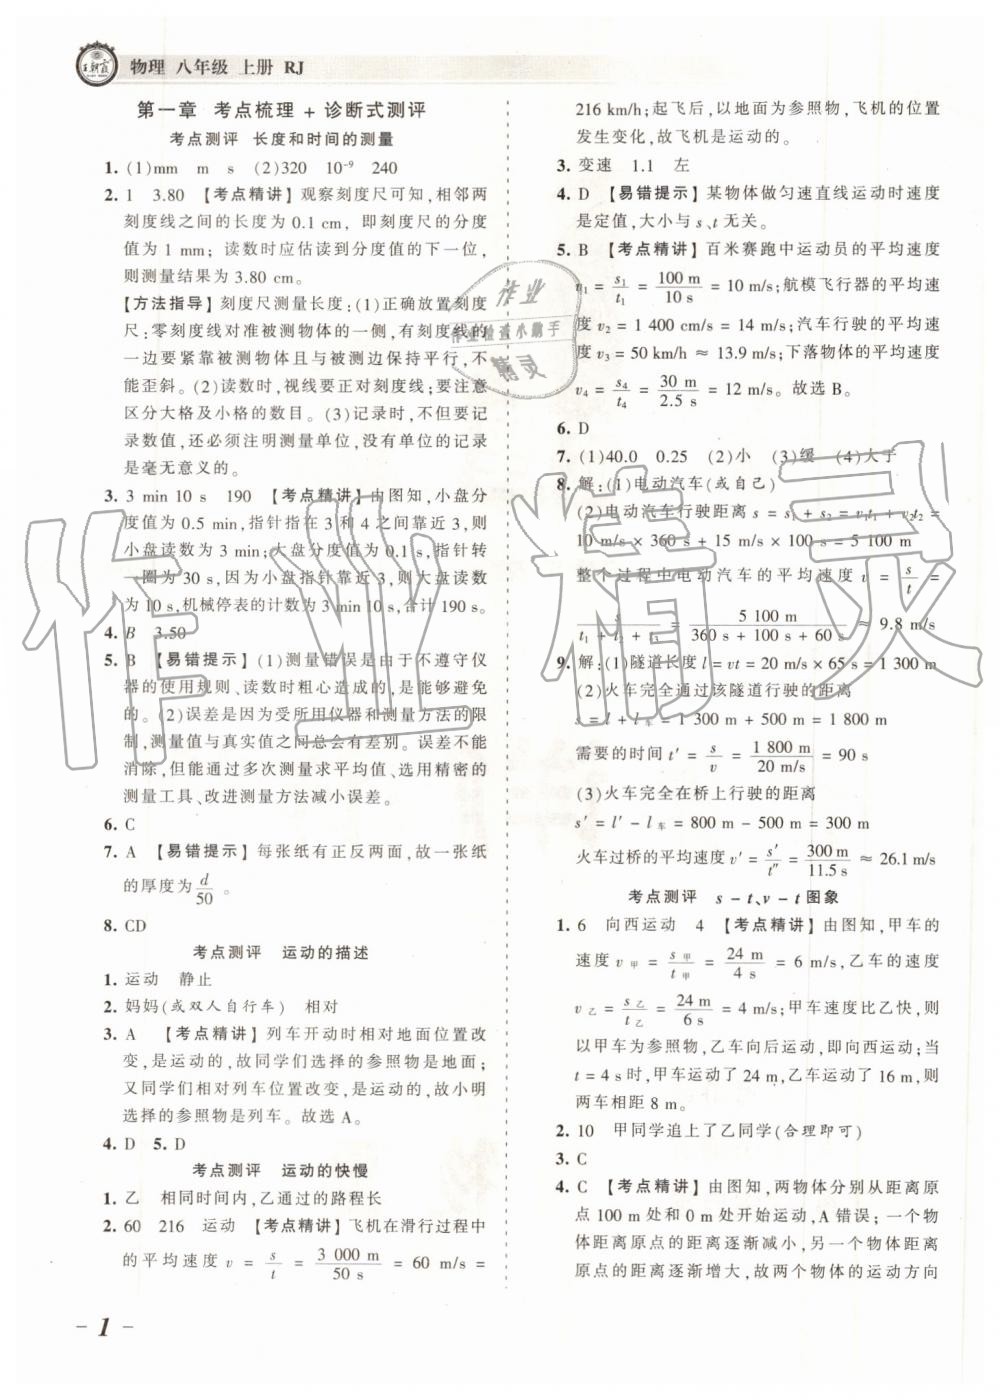 王朝霞
物理 八年级 上册 RJ
第一章 考点梳理 + 诊断式测评
考点测评 长度和时间的测量
1. (1)mm m s (2)320 10⁻⁹ 240
2. 1 3.80 【考点精讲】观察刻度尺可知，相邻两
刻度线之间的长度为 0.1 cm，即刻度尺的分度
值为 1 mm；读数时应估读到分度值的下一位，
则测量结果为 3.80 cm。
【方法指导】刻度尺测量长度：(1)正确放置刻度
尺：零刻度线对准被测物体的一侧，有刻度线的
一边要紧靠被测物体且与被测边保持平行，不
能歪斜。(2)读数时，视线要正对刻度线；要注意
区分大格及小格的数目。(3)记录时，不但要记
录数值，还必须注明测量单位，没有单位的记录
是毫无意义的。
3. 3 min 10 s 190 【考点精讲】由图知，小盘分
度值为 0.5 min，指针指在 3 和 4 之间靠近 3，则
小盘读数为 3 min；大盘分度值为 0.1 s，指针转
一圈为 30 s，因为小盘指针靠近 3，则大盘读数
为 10 s，机械停表的计数为 3 min 10 s，合计 190 s。
4. B 3.50
5. B 【易错提示】(1)测量错误是由于不遵守仪
器的使用规则、读数时粗心造成的，是能够避免
的。(2)误差是因为受所用仪器和测量方法的限
制，测量值与真实值之间总会有差别。误差不能
消除，但能通过多次测量求平均值、选用精密的
测量工具、改进测量方法减小误差。
6. C
7. A 【易错提示】每张纸有正反两面，故一张纸
的厚度为 d/50 。
8. CD
考点测评 运动的描述
1. 运动 静止
2. 妈妈(或双人自行车) 相对
3. A 【考点精讲】列车开动时相对地面位置改
变，是运动的，故同学们选择的参照物是地面；
又同学们相对列车位置改变，是运动的，故小明
选择的参照物是列车。故选 A。
4. D 5. D
考点测评 运动的快慢
1. 乙 相同时间内，乙通过的路程长
2. 60 216 运动 【考点精讲】飞机在滑行过程中
的平均速度 v = s/t = 3 000 m/50 s = 60 m/s =
216 km/h；起飞后，以地面为参照物，飞机的位置
发生变化，故飞机是运动的。
3. 变速 1.1 左
4. D 【易错提示】某物体做匀速直线运动时速度
是定值，大小与 s、t 无关。
5. B 【考点精讲】百米赛跑中运动员的平均速度
v₁ = s₁/t₁ = 100 m/10 s = 10 m/s；航模飞行器的平均速
度 v₂ = 1 400 cm/s = 14 m/s；汽车行驶的平均速
度 v₃ = 50 km/h ≈ 13.9 m/s；下落物体的平均速度
v₄ = s₄/t₄ = 30 m/2.5 s = 12 m/s。故选 B。
6. D
7. (1)40.0 0.25 (2)小 (3)缓 (4)大于
8. 解：(1)电动汽车(或自己)
(2)电动汽车行驶距离 s = s₁ + s₂ = v₁t₁ + v₂t₂ =
10 m/s × 360 s + 15 m/s × 100 s = 5 100 m
整个过程中电动汽车的平均速度 v = s/t =
s/(t₁ + t₂ + t₃) = 5 100 m/(360 s + 100 s + 60 s) ≈ 9.8 m/s
9. 解：(1)隧道长度 l = vt = 20 m/s × 65 s = 1 300 m
(2)火车完全通过该隧道行驶的距离
s = l + l车 = 1 300 m + 500 m = 1 800 m
需要的时间 t′ = s/v = 1 800 m/20 m/s = 90 s
(3)火车完全在桥上行驶的距离
s′ = l′ − l车 = 800 m − 500 m = 300 m
火车过桥的平均速度 v′ = s′/t″ = 300 m/11.5 s ≈ 26.1 m/s
考点测评 s－t、v－t 图象
1. 6 向西运动 4 【考点精讲】由图知，甲车的
速度 v甲 = s甲/t甲 = 24 m/4 s = 6 m/s，乙车的速度
v乙 = s乙/t乙 = 24 m/6 s = 4 m/s；甲车速度比乙快，则
以甲车为参照物，乙车向后运动，即向西运动；当
t = 4 s 时，甲车运动了 24 m，乙车运动了 16 m，则
两车相距 8 m。
2. 10 甲同学追上了乙同学(合理即可)
3. C
4. C 【考点精讲】由图知，两物体分别从距离原
点 100 m 处和 0 m 处开始运动，A 错误；一个物
体距离原点的距离逐渐减小，另一个物体距离
原点的距离逐渐增大，故两个物体的运动方向
－ 1 －
作业
作业检查小助手
精灵
作业精灵